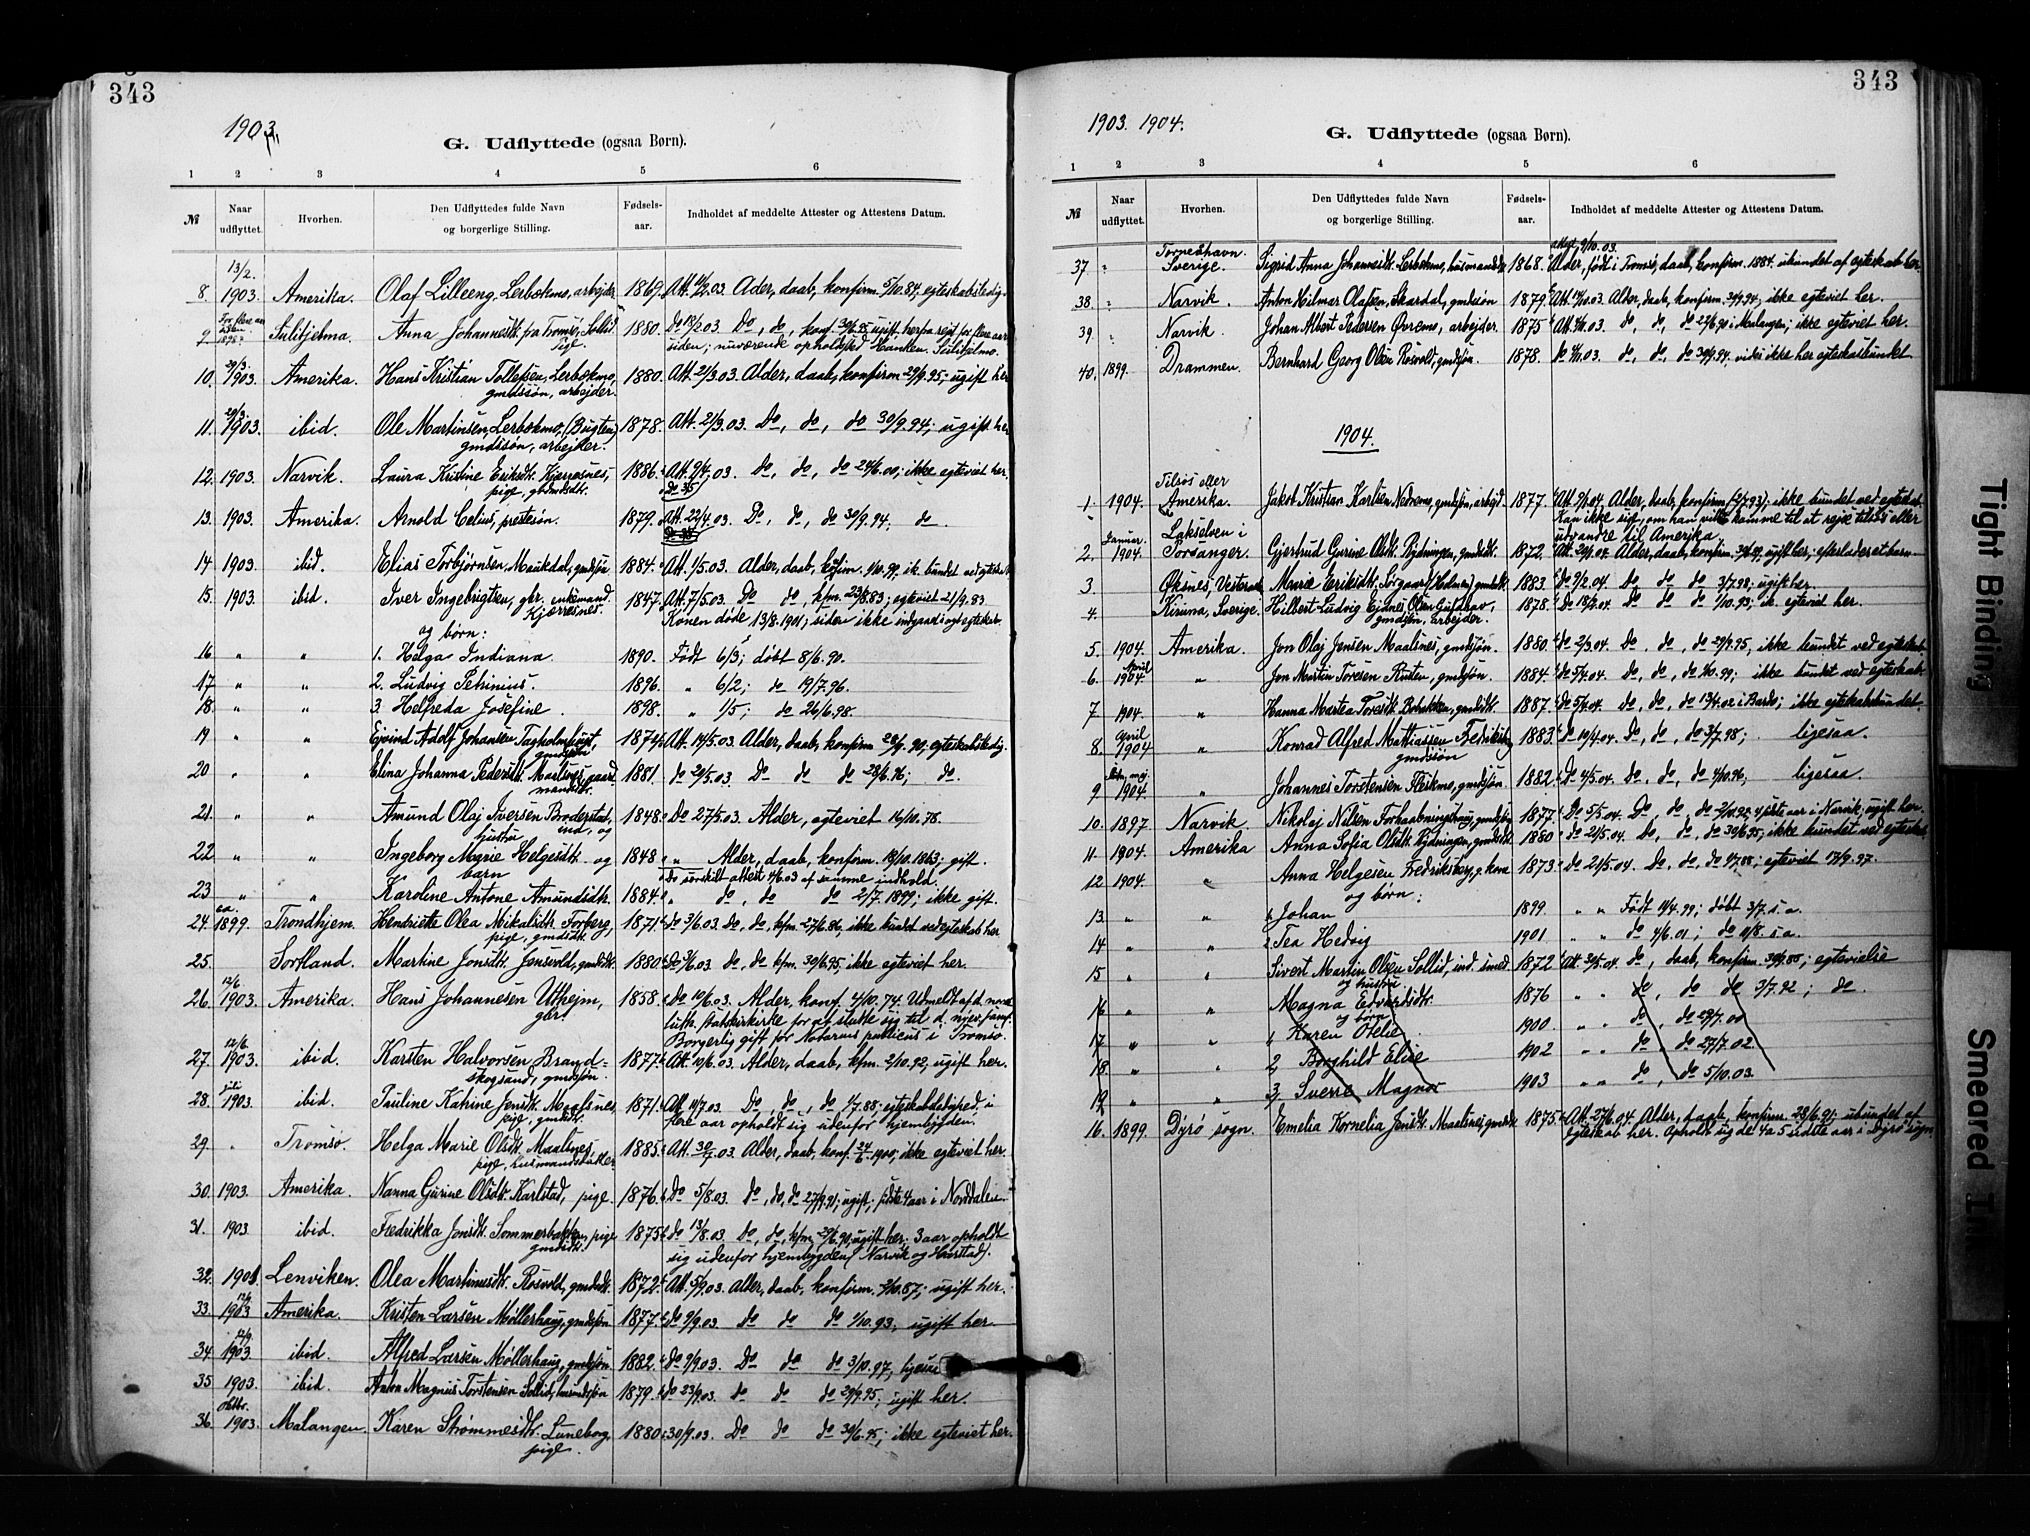 343
1903
G. Udflyttede (ogsaa Børn).
1 2 3 4 5 6
№ Naar udflyttet. Hvorhen. Den Udflyttedes fulde Navn og borgerlige Stilling. Fødsels-aar. Indholdet af meddelte Attester og Attestens Datum.
8. 13/2. 1903. Amerika. Olaf Lilleeng, Lerbækmo, arbejder 1869. Att. 03 Alder, daab, konfirm. 5/10 84, egteskabsledig.
9 Sulitjelma. Anna Johannesdtr. fra Tromsø, Sollid. pige. 1880. Do 03. Do, do, konf.
siden; nuværende opholdssted Hanken, Sulitjelma.
10. 20/3. 1903. Amerika. Hans Kristian Tollefsen, Lerbækmo, 1880. Att. 21/3 03. Alder, daab, konfirm 29/9. 95; ugift her
gmdssøn, arbejder.
11. 20/3. 1903. ibid. Ole Martinsen, Lerbækmo, (Bugten) 1878. Att. 21/3. 03. Do, do, do 30/9. 94; ugift her
gmdssøn, arbejder.
12. 1903. Narvik. Laura Kristine Eriksdtr. Kjerresnes, 1886. Att. 9/4. 03. Do, do, do 24/6. 00; ikke egteviet her.
pige, gbdmdsdtr.
13. 1903. Amerika. Arnold Celius, prestesøn. 1879. Att. 22/4. 03. Do, do, do 30/9. 94. do
14 1903. ibid. Elias Torbjørnsen, gmdssøn 1884. Att. 1/5 03. Alder, daab, konfirm. 1/10 99, ik. bundet ved egteskab
15. 1903. ibid. Iver Ingebrigtsen, gbr. enkemand. Kjærresnes. 1847. Att. 7/5. 03. Do do, kfm. 23/8. 63; egteviet 21/9. 83
og børn: Konen døde 13/8. 1901; siden ikke indgaaet i nyt egteskab.
16 " " 1. Helga Indiana. 1890. Født 6/3; døbt 8/6. 90.
17 " " 2. Ludvig Petrinius. 1896. " 6/2; do 19/7. 96.
18. " " 3. Helfreda Josefine. 1898. " 1/5; do 26/6. 98.
19 " " Ejvind Adolf Johansen 1874. Att. 14/5. 03. Alder, daab, konfirm egteskabsledig.
20 " " Elina Johanna Pedersdtr. 1881. do 29/5. 03. Do do do 28/6. 96; do.
21. " " Amund Olaj Iversen Broderstad, ind., og 1848. Do 27/5. 03. Alder, egteviet 16/10. 78.
hustru
22 " " Ingeborg Marie Helgesdtr. og 1848 " Alder, daab, konfirm. 18/10. 1863; gift.
barn Do særskilt attest 4/6. 03 af samme indhold.
23 " " Karoline Antone Amundsdtr. 1884. " do, do do 2/7. 1899; ikke gift.
24. ca. 1899. Trondhjem. Henriette Olea Mikalsdtr. Forberg, 1871. do 3/6. 03. do, do, kfm. 27/6. 86, ikke bundet ved egteskab her
pige, gmdsdtr.
25. Sortland. Martine Jonsdtr. Jensvold, gmdsdtr. 1880. do 9/6. 03. do, do kfm. 30/6. 95; ikke egteviet her.
26. 12/6 1903. Amerika. Hans Johannesen Uthejm, 1858. Do 10/6. 03. Alder, konf. 4/10. 74. Udmeldt af d. norsk
gbr. luth. statskirke for at slutte sig til d.
Borgerlig gift for Notarius publicus i Tromsø.
27. 12/6. 1903. ibid. Karsten Halvorsen Brand= 1877. Att. 10/6. 03. Alder, daab, kfm. 2/10. 92, ugift her.
skogsand, gmdsøn.
28. juli 1903. ibid. Pauline Katrine Jensdtr. Maalsnes, 1871. Att 11/7. 03. Do, do, do 1/7. 88; egteskabsledighed, i
pige, gmdsdtr. flere aar opholdt sig udenfor hjembygden.
29. " Tromsø. Helga Marie Olsdtr. Maalsnes, 1885. Att. 03. Alder, daab, konf. 24/6 1900; ikke egteviet her.
pige, husmandsdatter
30. 1903. Amerika. Nanna Gurine Olsdtr. Karlstad, pige 1876. Do 5/8. 03. do, do, do 27/9. 91; ugift; sidste 4 aar i Norddalen.
31. 1903 ibid. Fredrikka Jonsdtr. Sommerbakken, pige 1875. do 13/8. 03. Do, do, kfm. 29/6. 90, ugift her; 3 aar opholdt
gmdsdtr. sig udenfor hjembygden (Narvik og Harstad).
32. Lenviken. Olea Martinusdtr. Rosvold, gmdsdtr. 1872. Att. 5/9. 03. Alder, daab, konfirm. 2/10. 87; ugift her.
33. 1903 Amerika. Kristen Larsen Møllerhaug, gmdssøn 1877. do 9/9. 03 do do do 1/10. 93; ugift her.
34 1903 ibid. Alfred Larsen Møllerhaug, gmdssøn 1882. Do 9/9. 03. Do do do 3/10. 97,
35 1903. ibid. Anton Magnus Torstensen Sollid, husmdssøn 1879. do 23/9. 03. do do do 29/9. 95; ugift her.
36. oktbr. 1903. Malangen. Karen Strømmesdtr. Luneborg, 1880. 30/9. 03. Do do do 30/6. 95; ikke egteviet her.
pige.
343
1903. 1904.
G. Udflyttede (ogsaa Børn).
1 2 3 4 5 6
№ Naar udflyttet. Hvorhen. Den Udflyttedes fulde Navn og borgerlige Stilling. Fødsels-aar. Indholdet af meddelte Attester og Attestens Datum.
attest 9/10. 03.
37 " Torneshavn. Sverige. Sigrid Anna Johannesdtr. Lerbækmo, husmandsdtr. 1868. Alder, født i Tromsø, daab, konfirm. 1884. ubundet af egteskab her.
38. " Narvik. Anton Hilmar Olafsen, Skardal, gmdssøn 1879. Att. 03. Alder, daab, konfirm. 30/9. 94; ikke egteviet her.
39. " Narvik. Johan Albert Pedersen Øvremo, arbejder. 1875 Att. 03. do, do, do i Malangen; ikke egteviet her.
40. 1899. Drammen. Bernhard Georg Olsen Rosvold, gmdssøn. 1878. do 03. do, do, do 30/9. 94, vides ikke her egteskabbundet
1904.
1. 1904. Tilsøs eller Amerika. Jakob Kristian Karlsen Nedremo, gmdssøn, arbejd. 1877. Att. 04. Alder, daab, konfirm (93); ikke bundet ved egteskab.
Kan ikke sige, om han vilde komme til at rejse tilsøs eller
udvandre til Amerika.
2. Januar. 1904. Lakselven i Porsanger. Gjertrud Gurine Olsdtr. Rydningen, gmdsdtr. 1872. Att. 04. Alder, daab, konfirm. ugift her; efterlader et barn
3. Øksnes, Vesteraalen Marie Eriksdtr. Sørgaard (Holmen) gmdsdtr. 1883. do 9/2. 04. Do do do 3/7. 98; ugift her
4. Kiruna, Sverige. Hilbert Ludvig Olsen 1878. Do 18/2. 04. Do do do 1/10. 93; ik. egteviet her.
gmdssøn, arbejder.
5. 1904. Amerika. Jon Olaj Jensen Maalsnes, gmdssøn. 1880. do 2/3. 04. Do, do, do 29/9. 95, ikke bundet ved egteskab
6. April 1904 " Jon Martin Toresen Rutten, gmdssøn. 1884. do 5/4. 04. do, do, do 1/10. 99; ikke bundet ved egteskab.
7 1904. " Hanna Martea Toresdtr. Bobakken, gmdsdtr. 1887. do 5/4. 04. do, do, do 02 i Bardo; ikke egteskabsbundet.
8. april 1904 " Konrad Alfred Mathiassen Fredriksberg 1883. do 19/4. 04. Do, do, do 3/7. 98; ligesaa.
gmdssøn
9 1904 " Johannes Torstensen Fleskmo, gmdssøn 1882. Do 4/5. 04. Do, do, do 4/10. 96; ligesaa.
10. 1897 Narvik. Nikolaj Nilsen Forhaabningshaug, gmdssøn 1877. Do 5/5. 04. Do, do, do 2/10. 92; sidste aar i Narvik, ugift her.
11. 1904. Amerika Anna Sofia Olsdtr. Rydningen, gmdsdtr. 1880 do 21/5. 04. Do, do, do 30/6. 95; ikke bundet ved egteskab
12 1904. " Anna Helgesen Fredriksberg, g. kone 1873. Do 21/5. 04. Do, do, do 88; egteviet 17/9. 97.
og børn:
13. " " 1 Johan 1899. " " Født 11/4. 99; døbt 3/7. s. a.
14 " " 2 Tea Hedvig 1901 " " do 4/6. 01; do 11/8. s. a.
15 " " Sivert Martin Olsen Sollid, ind. smed 1872 Att. 30/5. 04. do, daab, konfirm. 88; egtevielse
og hustru
16 " " Magna Edvardsdtr. 1876 " " do, do do 3/7. 92; do.
og børn
17 " " 1 Karen Otelie. 1900. " " do, do 29/7. 00
18 " " 2, Borghild Elise 1902 " " do, do 27/7. 02.
19 " " 3, Sverre Magnor 1903 " " do, do 5/10. 03.
16. 1899. Dyrø sogn. Emelia Kornelia Jensdtr. Maalsnes, gmdsdtr. 1875. Att. 27/6. 04. Alder, daab, konfirm. 28/6. 91; ubundet af
egteskab her. Opholdt sig de 4 a 5 sidste aar i Dyrø sogn.
Tight Binding
Smeared Ink